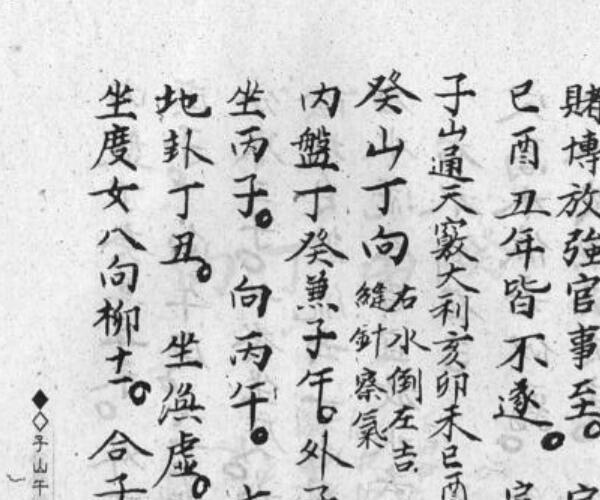 賭博放強官事至。
已酉丑年皆不遂。
子山通天竅大利亥卯未巳酉
癸山丁向 右水倒左吉 縫針察氣
内盤丁癸兼子午。外子
坐丙子。向丙午。
地卦丁丑。坐渙虛。
坐度女八向柳十一。合子
子山午